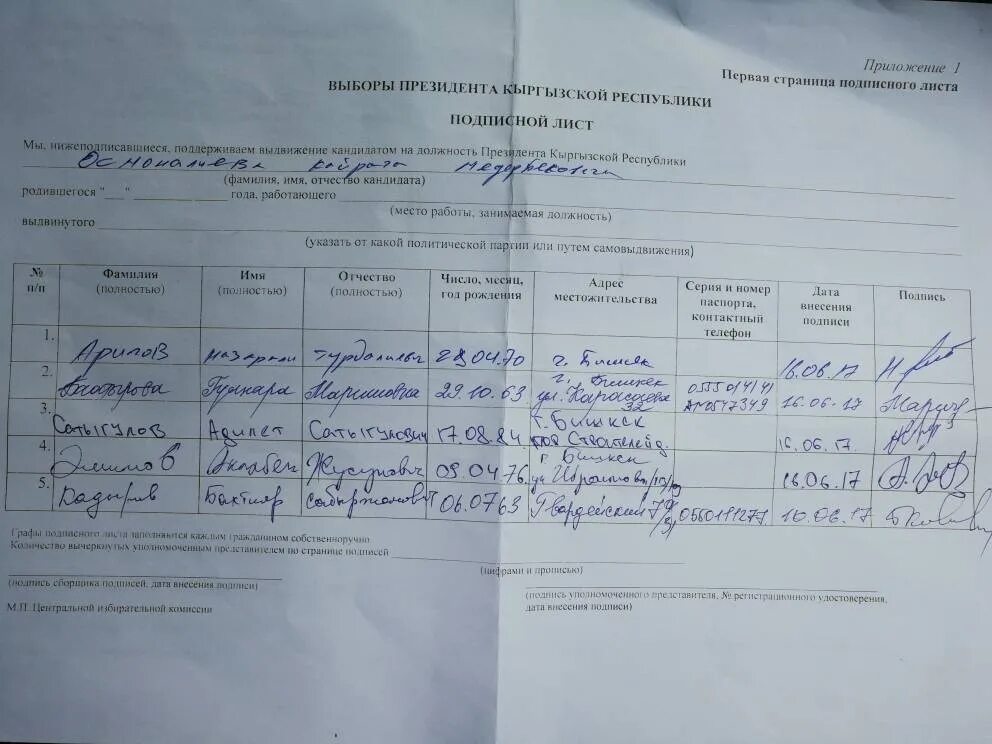 Приложение 1
Первая страница подписного листа
ВЫБОРЫ ПРЕЗИДЕНТА КЫРГЫЗСКОЙ РЕСПУБЛИКИ
ПОДПИСНОЙ ЛИСТ
Мы, нижеподписавшиеся, поддерживаем выдвижение кандидатом на должность Президента Кыргызской Республики
Осмоналиева Кайрата Медербековича
(фамилия, имя, отчество кандидата)
родившегося "___" ____________ года, работающего
(место работы, занимаемая должность)
выдвинутого
(указать от какой политической партии или путем самовыдвижения)
№ п/п Фамилия (полностью) Имя (полностью) Отчество (полностью) Число, месяц, год рождения Адрес местожительства Серия и номер паспорта, контактный телефон Дата внесения подписи Подпись
1. Арипов 28.04.70 г. Бишкек 16.06.17
2. Гулнара 29.10.63 г. Бишкек ул. 32 0555014141 16.06.17
3. Сатыгулов Адилет Сатыгулович 17.08.84 г. Бишкек 16.06.17.
4. Жусупович 09.04.76. г Бишкек 16.06.17
5. Кадыров Бактияр 06.0763 10.06.17
Графы подписного листа заполняются каждым гражданином собственноручно
Количество вычеркнутых уполномоченным представителем по странице подписей
(цифрами и прописью)
(подпись сборщика подписей, дата внесения подписи)
(подпись уполномоченного представителя, № регистрационного удостоверения,
дата внесения подписи)
М.П. Центральной избирательной комиссии